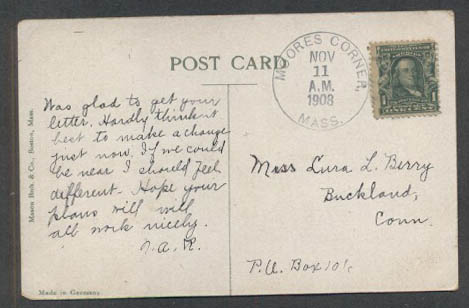 POST CARD
MOORES CORNER,
NOV
11
A.M.
1908
MASS.
Was glad to get your
letter. Hardly think it
best to make a change
just now. If we could
be near I should feel
different. Hope your
plans will will
all work nicely.
Miss Lura L. Berry
Buckland,
Conn.
P.O. Box
Mason Bros. & Co., Boston, Mass.
Made in Germany